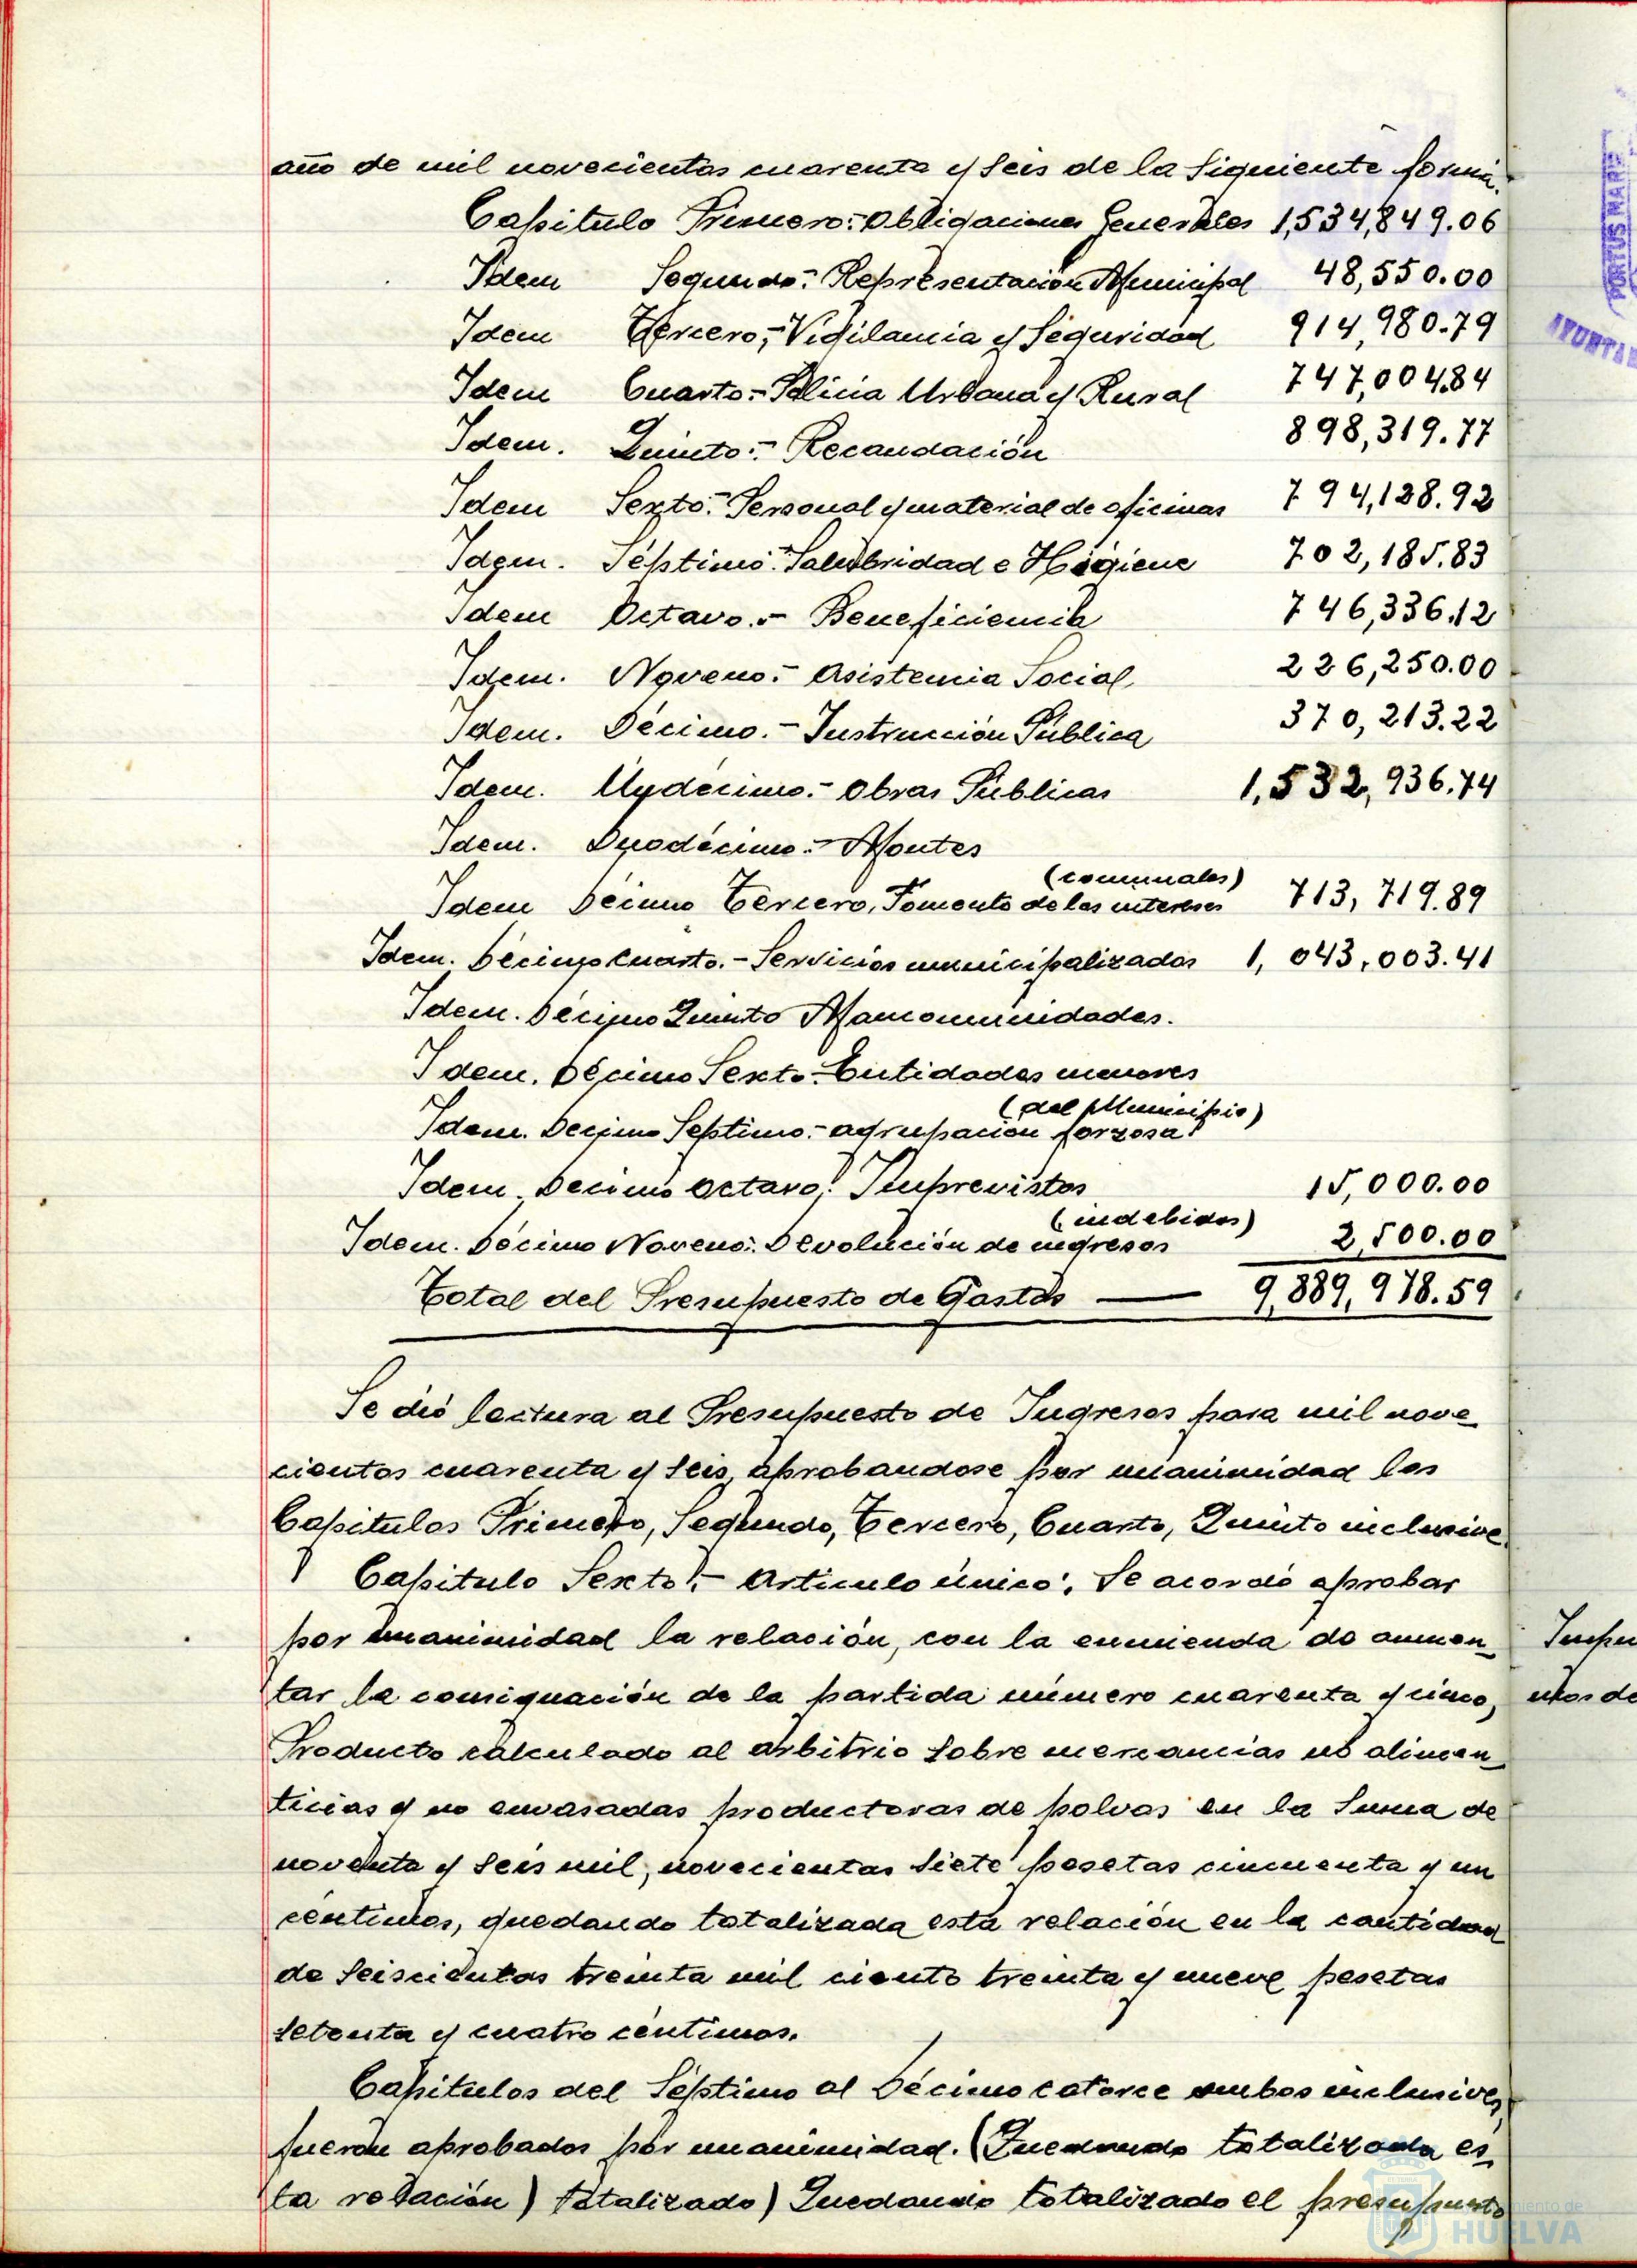 año de mil novecientos cuarenta y seis de la siguiente forma.
Capitulo Primero:- Obligaciones Generales 1,534,849.06
Idem Segundo:- Representación Municipal 48,550.00
Idem Tercero,- Vigilancia y Seguridad 914,980.79
Idem Cuarto.- Policia Urbana y Rural 747,004.84
Idem. Quinto:- Recaudación 898,319.77
Idem Sexto:- Personal y material de oficinas 794,128.92
Idem. Séptimo:- Salubridad e Higiene 702,185.83
Idem Octavo.- Beneficiencia 746,336.12
Idem. Noveno:- Asistencia Social 226,250.00
Idem. Décimo.- Instrucción Pública 370,213.22
Idem. Undecimo.- Obras Públicas 1,532,936.74
Idem. Duodécimo.- Montes
(comunales)
Idem Décimo Tercero, Fomento de los intereses 713,719.89
Idem. Décimo Cuarto.- Servicios municipalizados 1,043,003.41
Idem. Décimo Quinto Mancomunidades.
Idem. Décimo Sexto.- Entidades menores
(del Municipio)
Idem. Decimo Septimo.- agrupación forzosa
Idem. Decimo octavo: Imprevistos 15,000.00
(indebidos)
Idem. Décimo Noveno:. Devolución de ingresos 2,500.00
Total del Presupuesto de Gastos —— 9,889,978.59
Se dió lectura al Presupuesto de Ingresos para mil nove
cientos cuarenta y seis, aprobandose por unanimidad los
Capitulos Primero, Segundo, Tercero, Cuarto, Quinto inclusive
Capitulo Sexto:- Articulo único:. Se acordó aprobar
por unanimidad la relación, con la enmienda de aumen_
tar la consignación de la partida número cuarenta y cinco,
Producto calculado al arbitrio sobre mercancias no alimen_
ticias y no envasadas productoras de polvos en la Suma de
noventa y seis mil, novecientas siete pesetas cincuenta y un
centimos, quedando totalizada esta relación en la cantidad
de Seiscientas treinta mil ciento treinta y nueve pesetas
setenta y cuatro céntimos.
Capitulos del Séptimo al Décimo catorce ambos inclusives,
fueron aprobados por unanimidad. (Quedando totalizada es_
ta relación) totalizado) Quedando totalizado el presupuesto
PORTUS MARIS
AYUNTA
utos de
HUELVA